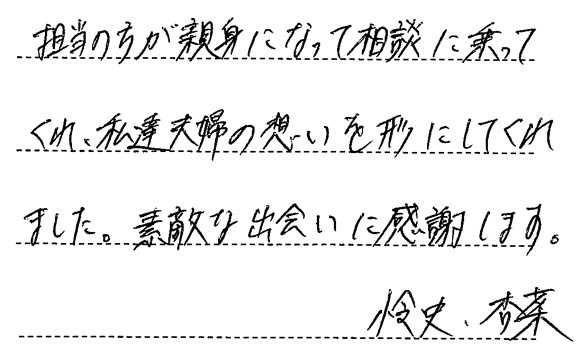 担当の方が親身になって相談に乗って
くれ、私達夫婦の想いを形にしてくれ
ました。素敵な出会いに感謝します。
怜史、杏菜